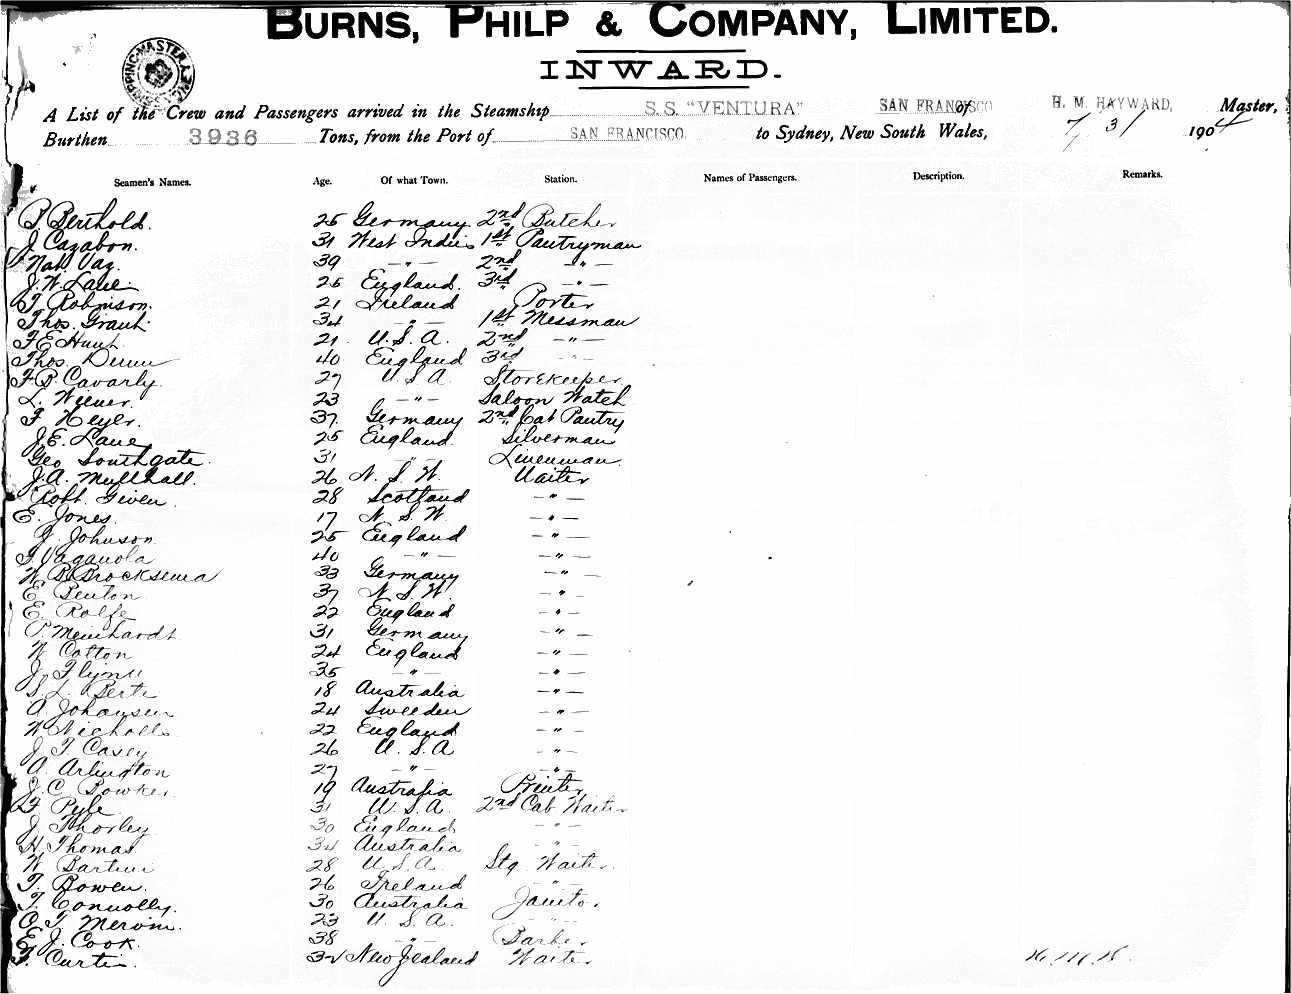 BURNS, PHILP & COMPANY, LIMITED.
INWARD.
A List of the Crew and Passengers arrived in the Steamship S.S. "VENTURA" of SAN FRANCISCO H. M. HAYWARD, Master,
Burthen 3936 Tons, from the Port of SAN FRANCISCO. to Sydney, New South Wales, 7/3/ 1904
Seamen's Names. Age. Of what Town. Station. Names of Passengers. Description. Remarks.
P. Berthold. 25 Germany 2nd Butcher
J. Cazabon. 31 West Indies 1st Pantryman
Nat. Vaz. 39 — " — 2nd — " —
J. W. Lane. 25 England. 3rd — " —
T. Robinson. 21 Ireland Porter
Thos. Grant. 34 — " — 1st Messman
F. E. Hunt. 21 U. S. A. 2nd — " —
Thos. Dunn 40 England 3rd — " —
F. B. Cavarly. 27 U S A. Storekeeper
L. Wiener. 23 — " — Saloon Watch
F. Heyer. 37 Germany 2nd Cab Pantry
J. E. Lane 25 England. Silverman
Geo Southgate. 31 — " — Linenman.
J. A. Mullhall. 26 N. S. W. Waiter
Robt. Given. 28 Scotland — " —
E. Jones. 17 N. S. W. — " —
J. Johnson. 25 England — " —
40 — " — — " —
W. B. Brocksema 33 Germany — " —
E. Benton 37 N. S. W. — " —
E. Rolfe 22 England — " —
P. Meinhardt 31 Germany — " —
W Cotton 24 England — " —
J. Flynn 35 — " — — " —
S. L. Berte 18 Australia — " —
A. Johansen 24 Sweeden — " —
W Nicholls 22 England — " —
J. T. Casey 26 U. S. A — " —
A. Arlington 27 — " — — " —
J. C. Bowker 19 Australia Printer
F. Pyle 31 U. S. A. 2nd Cab Waiter
J. Thorley 30 England — " —
H. Thomas 34 Australia — " —
W 28 U. S. A. Stg. Waiter.
T. Bowen. 26 Ireland — " —
T. Connolly. 30 Australia Janitor.
C. T. 23 U. S. A. — " —
E. J. Cook. 38 — " — Barber
F. Curtis. 32 New Zealand Waiter
H. M. H.